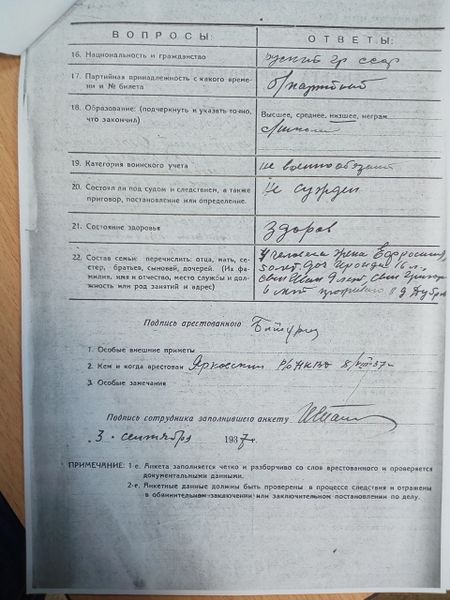 ВОПРОСЫ: ОТВЕТЫ:
16. Национальность и гражданство
русский гр ссср
17. Партийная принадлежность с какого време-
ни и № билета
б/партийный
18. Образование: (подчеркнуть и указать точно,
что закончил)
Высшее, среднее, низшее, неграм.
19. Категория воинского учета
не военнообязан
20. Состоял ли под судом и следствием, а также
приговор, постановление или определение.
Не сужден
21. Состояние здоровья
здоров
22. Состав семьи: перечислить: отца, мать, се-
стер, братьев, сыновей, дочерей. (Их фа-
милия, имя и отчество, место службы и дол-
жность или род занятий и адрес)
человека жена
50 лет доч 16 л.,
сын Иван 9 лет, сын
6 лет д
Подпись арестованного
1. Особые внешние приметы
2. Кем и когда арестован Р/О НКВД 8/VIII 37 г
3. Особые замечания
Подпись сотрудника заполнившего анкету
3. сентября 1937 г.
ПРИМЕЧАНИЕ: 1-е. Анкета заполняется четко и разборчиво со слов арестованного и проверяется
документальными данными.
2-е. Анкетные данные должны быть проверены в процессе следствия и отражены
в обвинительном заключении или заключительном постановлении по делу.